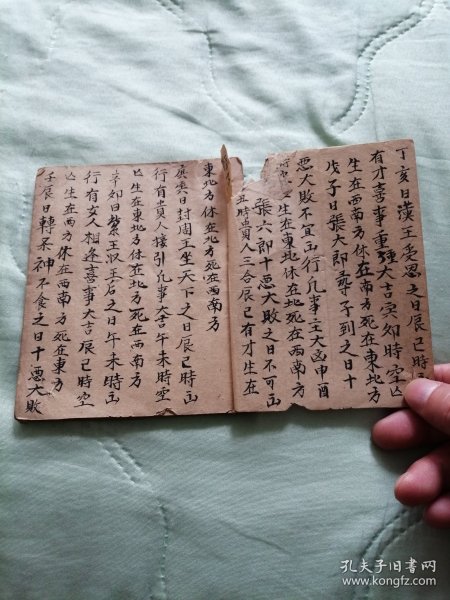 丁亥日漢王受恩之日辰巳時
有才喜事重強大吉寅卯時空亡
生在西南方休在南方死在東北方
戊子日張大郎尋子到之日十
惡大敗不宜出行凡事主大凶申酉
生在東北休在北死在西南方
張六郎十惡大敗之日不可出
五時貴人三合辰巳有才生在
東北方休在北方死在西南方
庚寅日封周王坐天下之日辰巳時出
行有貴人接引凡事大吉午未時空
亡生在東北方休在北方死在西南方
辛卯日漢王后之日午未時出
行有女人相逢喜事大吉辰巳時空
亡生在西方休在西南方死在東方
壬辰日轉杀神不食之日十惡大敗
孔夫子旧书网
www.kongfz.com